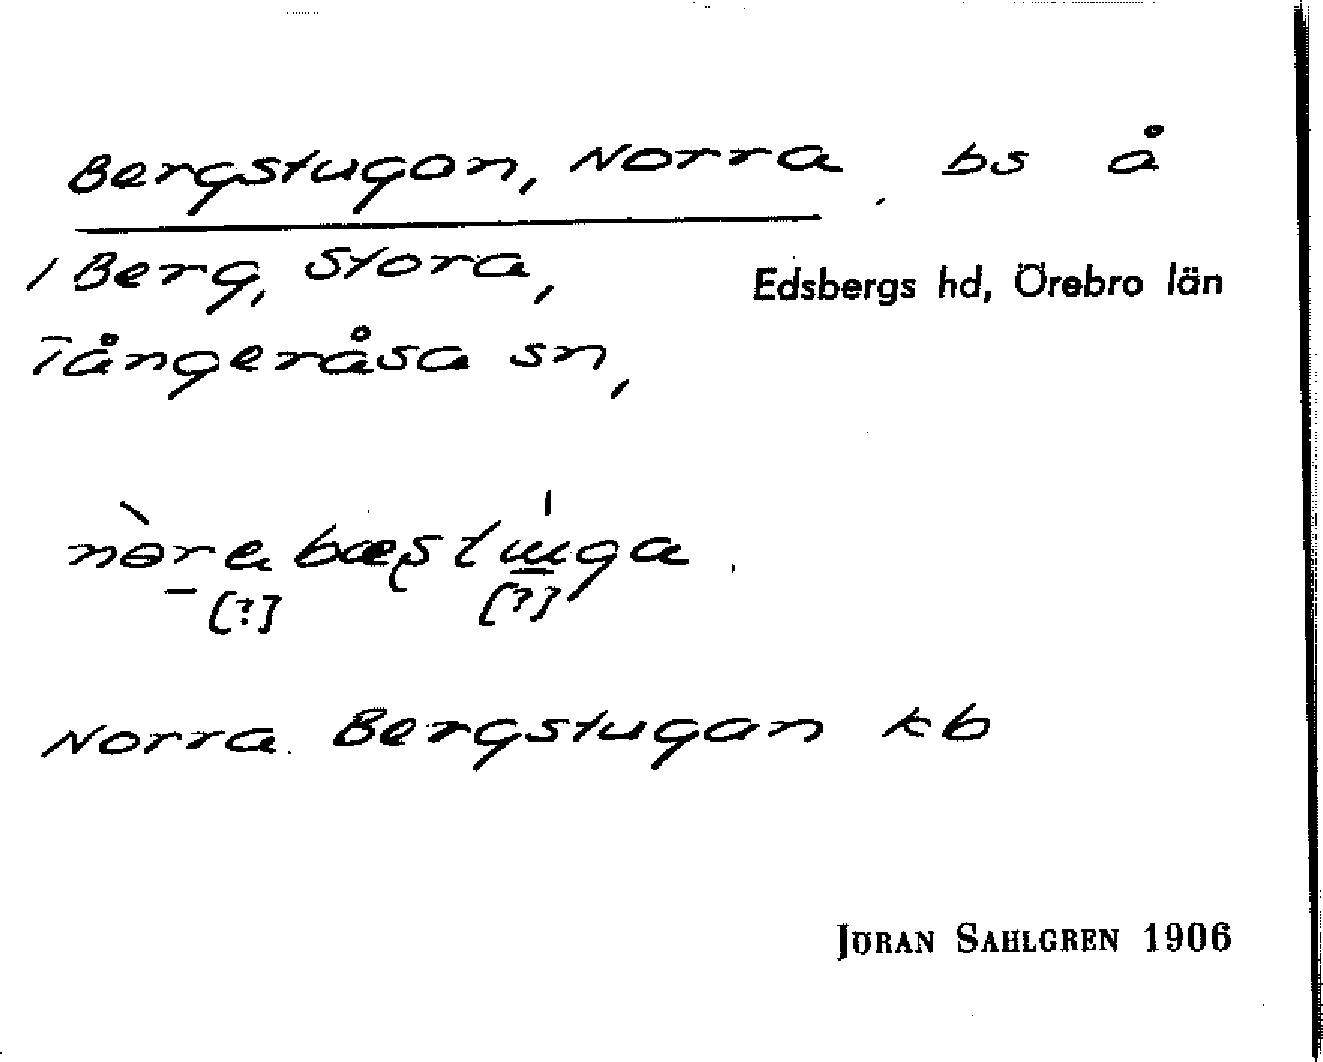 Bergstugan, Norra, bs å
1 Berg, Stora, Edsbergs hd, Örebro län
Tångeråsa sn,
[?] [?]
Norra Bergstugan kb
JÖRAN SAHLGREN 1906